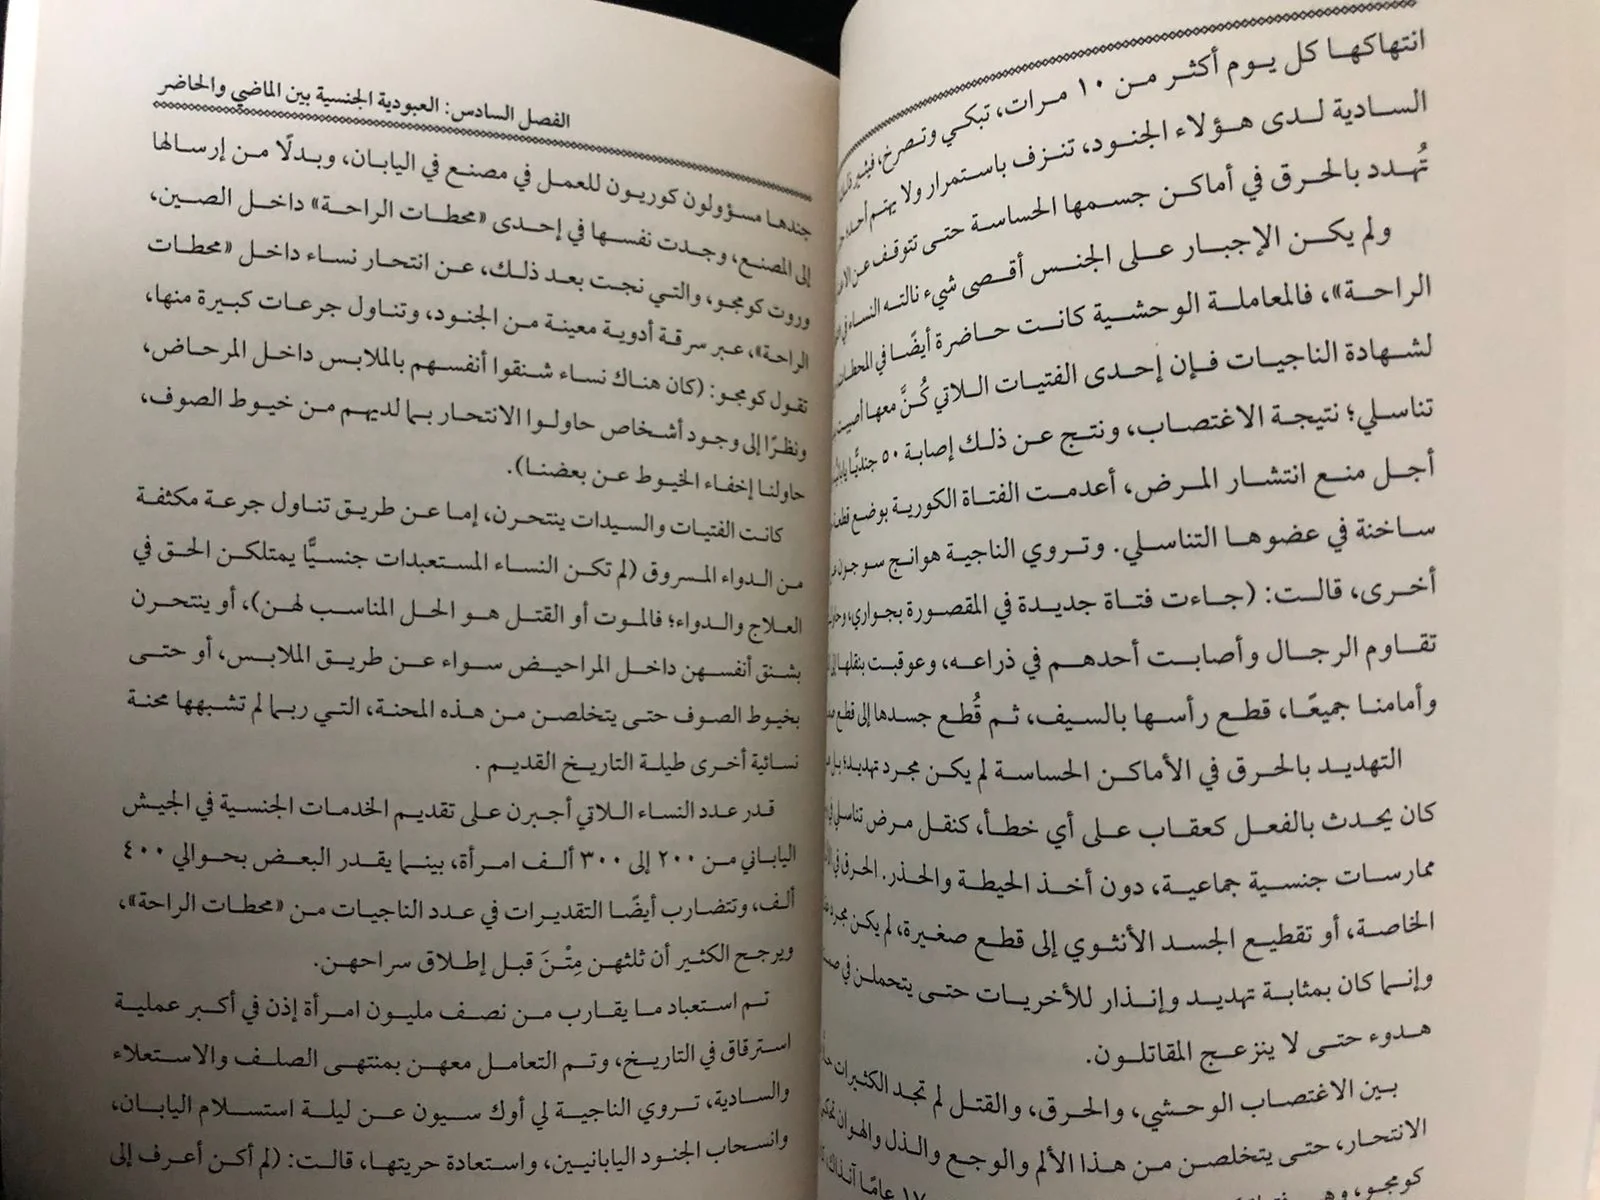 انتهاكها كل يوم أكثر من ١٠ مرات، تبكي وتصرخ، فيثير
السادية لدى هؤلاء الجنود، تنزف باستمرار ولا يهتم أحد
تُهدد بالحرق في أماكن جسمها الحساسة حتى تتوقف عن
ولم يكن الإجبار على الجنس أقصى شيء نالته النساء في
الراحة»، فالمعاملة الوحشية كانت حاضرة أيضًا في المحطات
لشهادة الناجيات فإن إحدى الفتيات اللاتي كُنَّ معها أصيبت
تناسلي؛ نتيجة الاغتصاب، ونتج عن ذلك إصابة ٥٠ جنديًّا
أجل منع انتشار المرض، أعدمت الفتاة الكورية بوضع قطعة
ساخنة في عضوها التناسلي. وتروي الناجية هوانج سو جون
أخرى، قالت: (جاءت فتاة جديدة في المقصورة بجواري،
تقاوم الرجال وأصابت أحدهم في ذراعه، وعوقبت بنقلها إلى
وأمامنا جميعًا، قطع رأسها بالسيف، ثم قُطع جسدها إلى قطع
التهديد بالحرق في الأماكن الحساسة لم يكن مجرد تهديد؛ بل
كان يحدث بالفعل كعقاب على أي خطأ، كنقل مرض تناسلي
ممارسات جنسية جماعية، دون أخذ الحيطة والحذر. الحرق في
الخاصة، أو تقطيع الجسد الأنثوي إلى قطع صغيرة، لم يكن مجرد
وإنما كان بمثابة تهديد وإنذار للأخريات حتى يتحملن في
هدوء حتى لا ينزعج المقاتلون.
بين الاغتصاب الوحشي، والحرق، والقتل لم تجد الكثيرات
الانتحار، حتى يتخلصن من هذا الألم والوجع والذل والهوان
كومجو، وهي ١٧ عامًا آنذاك،
الفصل السادس: العبودية الجنسية بين الماضي والحاضر
جندها مسؤولون كوريون للعمل في مصنع في اليابان، وبدلًا من إرسالها
إلى المصنع، وجدت نفسها في إحدى «محطات الراحة» داخل الصين،
وروت كومجو، والتي نجت بعد ذلك، عن انتحار نساء داخل «محطات
الراحة»، عبر سرقة أدوية معينة من الجنود، وتناول جرعات كبيرة منها،
تقول كومجو: (كان هناك نساء شنقوا أنفسهم بالملابس داخل المرحاض،
ونظرًا إلى وجود أشخاص حاولوا الانتحار بما لديهم من خيوط الصوف،
حاولنا إخفاء الخيوط عن بعضنا).
كانت الفتيات والسيدات ينتحرن، إما عن طريق تناول جرعة مكثفة
من الدواء المسروق (لم تكن النساء المستعبدات جنسيًّا يمتلكن الحق في
العلاج والدواء؛ فالموت أو القتل هو الحل المناسب لهن)، أو ينتحرن
بشنق أنفسهن داخل المراحيض سواء عن طريق الملابس، أو حتى
بخيوط الصوف حتى يتخلصن من هذه المحنة، التي ربما لم تشبهها محنة
نسائية أخرى طيلة التاريخ القديم .
قدر عدد النساء اللاتي أجبرن على تقديم الخدمات الجنسية في الجيش
الياباني من ٢٠٠ إلى ٣٠٠ ألف امرأة، بينما يقدر البعض بحوالي ٤٠٠
ألف، وتتضارب أيضًا التقديرات في عدد الناجيات من «محطات الراحة»،
ويرجح الكثير أن ثلثهن مِتْنَ قبل إطلاق سراحهن.
تم استعباد ما يقارب من نصف مليون امرأة إذن في أكبر عملية
استرقاق في التاريخ، وتم التعامل معهن بمنتهى الصلف والاستعلاء
والسادية، تروي الناجية لي أوك سيون عن ليلة استسلام اليابان،
وانسحاب الجنود اليابانيين، واستعادة حريتها، قالت: (لم أكن أعرف إلى